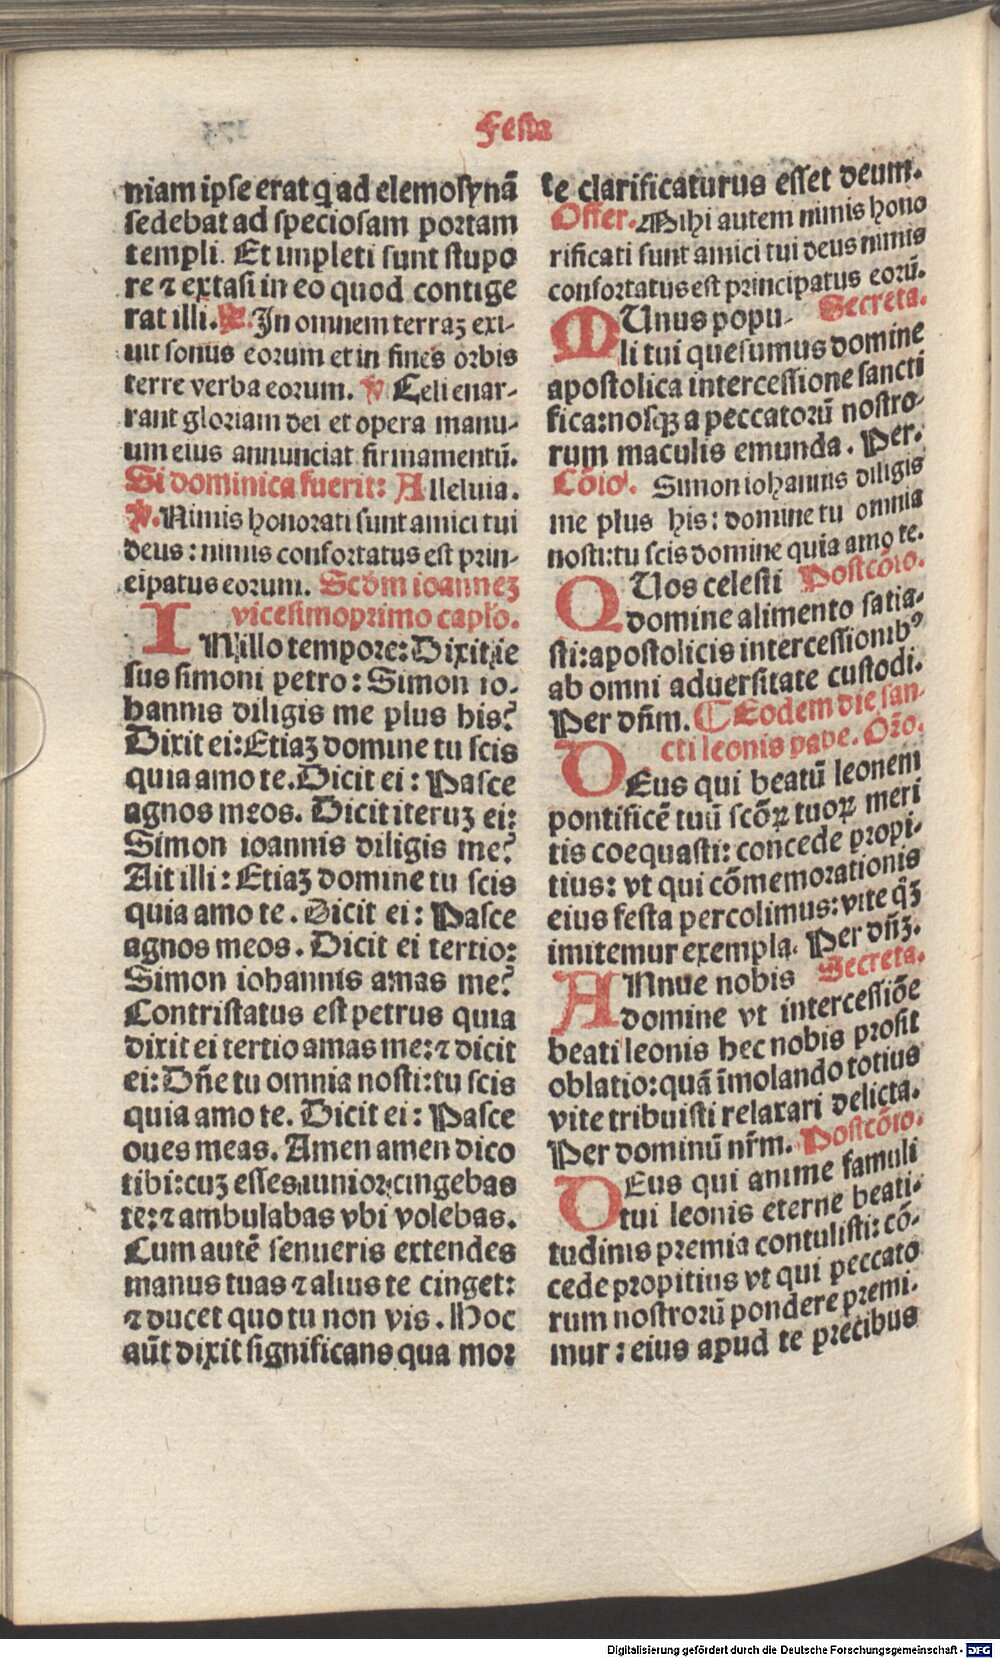 Festa
niam ipse erat q ad elemosynā
sedebat ad speciosam portam
templi. Et impleti sunt stupo
re ⁊ extasi in eo quod contige
rat illi. ℟. In omnem terraꝫ exi-
uit sonus eorum et in fines orbis
terre verba eorum. ℣ Celi enar-
rant gloriam dei et opera manu-
um eius annunciat firmamentū.
Si dominica fuerit: Alleluia.
℣. Nimis honorati sunt amici tui
deus: nimis confortatus est prin-
cipatus eorum. Scd̄m ioanneꝫ
vicesimoprimo capło.
IN illo tempore: Dixit ie
sus simoni petro: Simon io-
hannis diligis me plus his?
Dixit ei: Etiaꝫ domine tu scis
quia amo te. Dicit ei: Pasce
agnos meos. Dicit iteruꝫ ei:
Simon ioannis diligis me?
Ait illi: Etiaꝫ domine tu scis
quia amo te. Dicit ei: Pasce
agnos meos. Dicit ei tertio:
Simon iohannis amas me?
Contristatus est petrus quia
dixit ei tertio amas me: ⁊ dicit
ei: Dn̄e tu omnia nosti: tu scis
quia amo te. Dicit ei: Pasce
oues meas. Amen amen dico
tibi: cuꝫ esses iunior: cingebas
te: ⁊ ambulabas vbi volebas.
Cum autē senueris extendes
manus tuas ⁊ alius te cinget:
⁊ ducet quo tu non vis. Hoc
aūt dixit significans qua mor
te clarificaturus esset deum.
Offer. Mihi autem nimis hono
rificati sunt amici tui deus nimis
confortatus est principatus eorū.
MUnus popu- Secreta.
li tui quesumus domine
apostolica intercessione sancti
fica: nosqꝫ a peccatorū nostro-
rum maculis emunda. Per.
Cōio. Simon iohannis diligis
me plus his: domine tu omnia
nosti: tu scis domine quia amo te.
QUos celesti Postcōio.
domine alimento satia-
sti: apostolicis intercessionibꝰ
ab omni aduersitate custodi.
Per dn̄m. ¶ Eodem die san-
cti leonis pape. Or̄o.
DEus qui beatū leonem
pontificē tuū scōꝝ tuoꝝ meri
tis coequasti: concede propi-
tius: vt qui cōmemorationis
eius festa percolimus: vite q̄ꝫ
imitemur exempla. Per dn̄ꝫ.
ANnue nobis Secreta.
domine vt intercessiōe
beati leonis hec nobis prosit
oblatio: quā īmolando totius
vite tribuisti relaxari delicta.
Per dominū nr̄m. Postcōio.
DEus qui anime famuli
tui leonis eterne beati-
tudinis premia contulisti: cō-
cede propitius vt qui peccato
rum nostrorū pondere premi-
mur: eius apud te precibus
Digitalisierung gefördert durch die Deutsche Forschungsgemeinschaft - DFG